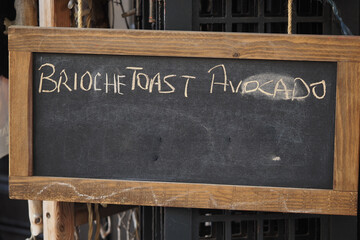 BRIOCHE TOAST AVOCADO